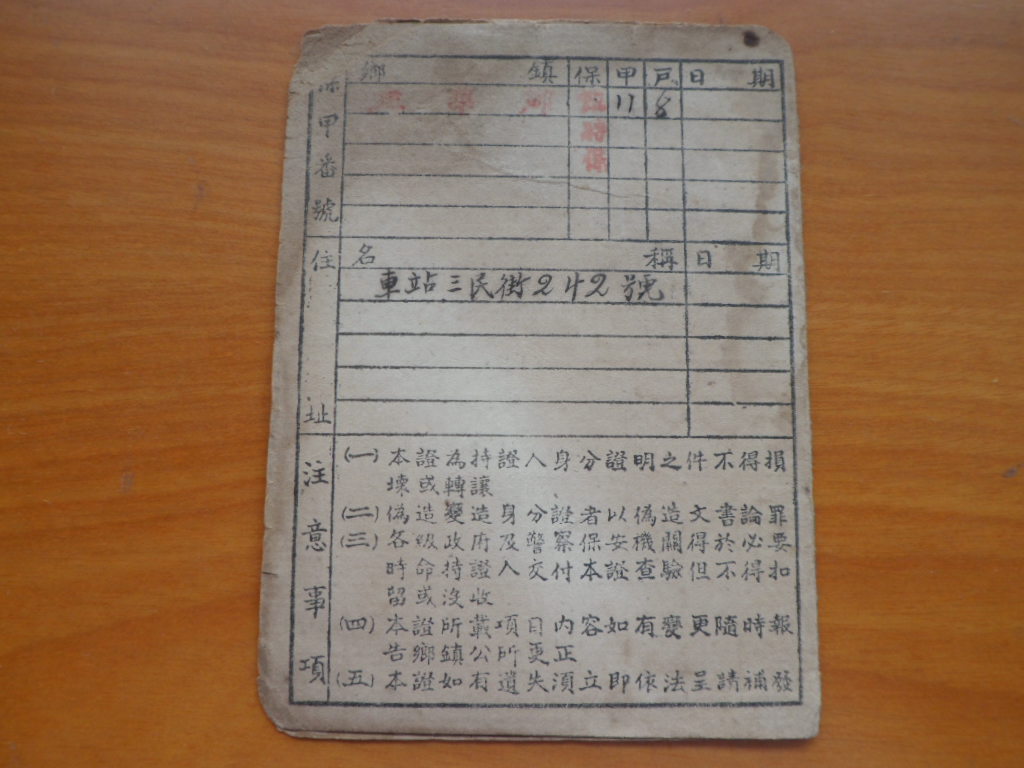 保甲番號
鄉鎮 保 甲 戶 日期
11 8
住址
名稱 日期
車站三民街242號
注意事項
(一)本證為持證人身分證明之件不得損
壞或轉讓
(二)偽造變造身分證者以偽造文書論罪
(三)各級政府及警察保安機關得於必要
時命持證人交付本證查驗但不得扣
留或沒收
(四)本證所載項目內容如有變更隨時報
告鄉鎮公所更正
(五)本證如有遺失須立即依法呈請補發